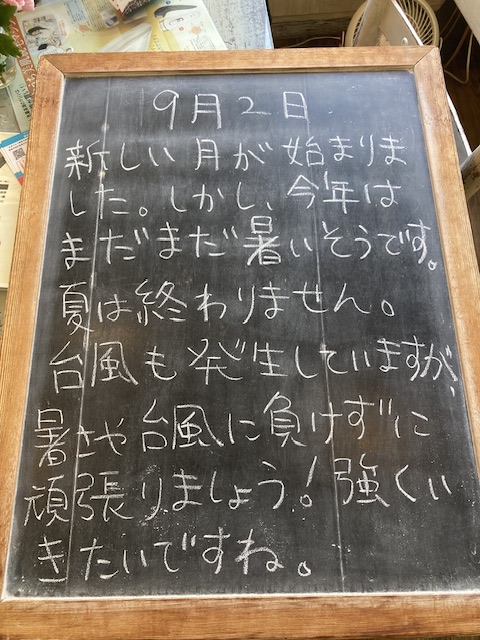 9月2日
新しい月が始まりま
した。しかし、今年は
まだまだ暑いそうです。
夏は終わりません。
台風も発生していますが、
暑さや台風に負けずに
頑張りましょう!強くい
きたいですね。